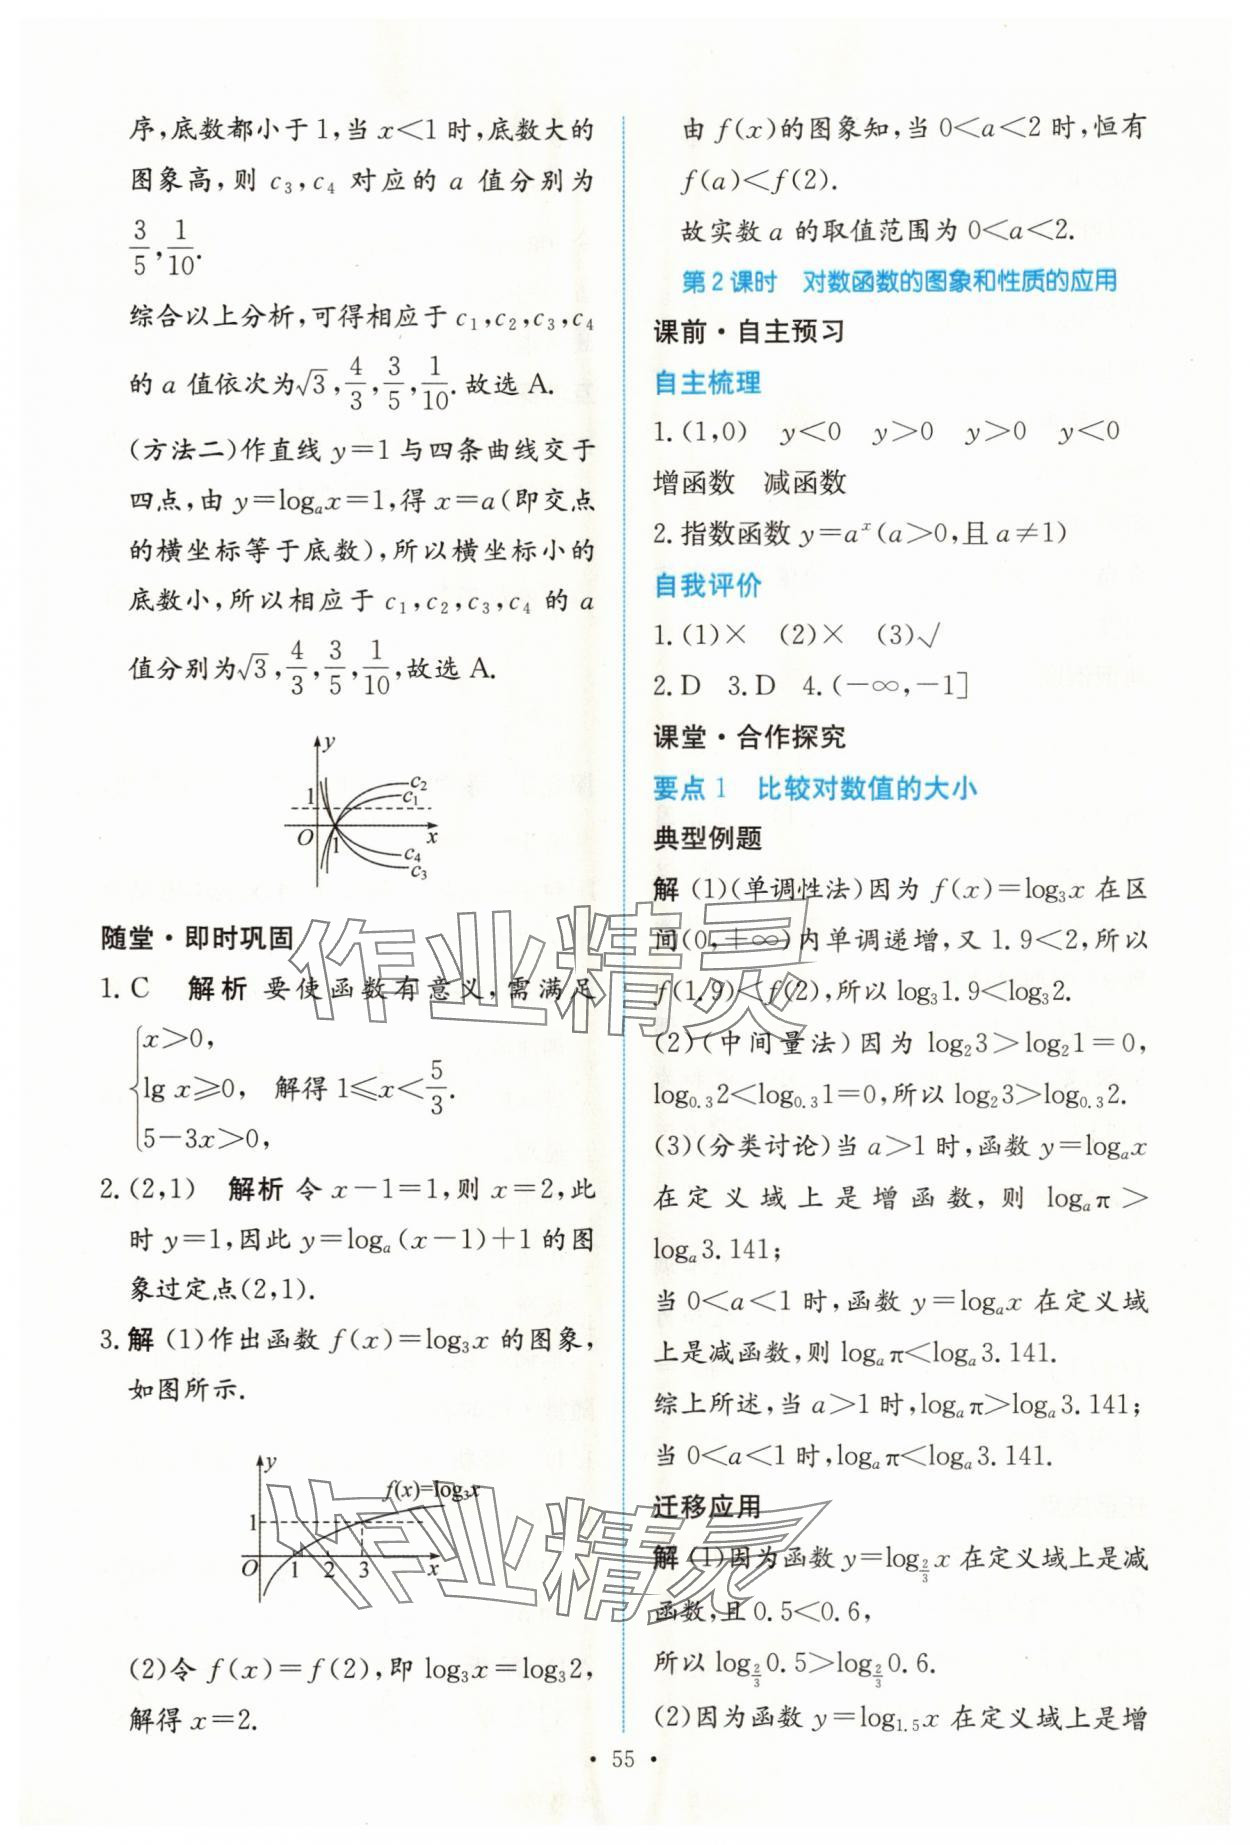 序,底数都小于1,当 x<1 时,底数大的
图象高,则 c₃,c₄ 对应的 a 值分别为
3/5,1/10.
综合以上分析,可得相应于 c₁,c₂,c₃,c₄
的 a 值依次为√3,4/3,3/5,1/10.故选 A.
(方法二)作直线 y=1 与四条曲线交于
四点,由 y=logₐx=1,得 x=a(即交点
的横坐标等于底数),所以横坐标小的
底数小,所以相应于 c₁,c₂,c₃,c₄ 的 a
值分别为√3,4/3,3/5,1/10,故选 A.
y
c₂
1
c₁
O 1 x
c₄
c₃
随堂·即时巩固
1. C 解析 要使函数有意义,需满足
{x>0,
lg x≥0, 解得 1≤x<5/3.
5-3x>0,
2. (2,1) 解析 令 x-1=1,则 x=2,此
时 y=1,因此 y=logₐ(x-1)+1 的图
象过定点(2,1).
3. 解 (1)作出函数 f(x)=log₃x 的图象,
如图所示.
y
f(x)=log₃x
1
O 1 2 3 x
(2)令 f(x)=f(2),即 log₃x=log₃2,
解得 x=2.
由 f(x)的图象知,当 0<a<2 时,恒有
f(a)<f(2).
故实数 a 的取值范围为 0<a<2.
第2课时 对数函数的图象和性质的应用
课前·自主预习
自主梳理
1. (1,0) y<0 y>0 y>0 y<0
增函数 减函数
2. 指数函数 y=aˣ(a>0,且 a≠1)
自我评价
1. (1)× (2)× (3)√
2. D 3. D 4. (-∞,-1]
课堂·合作探究
要点1 比较对数值的大小
典型例题
解 (1)(单调性法)因为 f(x)=log₃x 在区
间(0,+∞)内单调递增,又 1.9<2,所以
f(1.9)<f(2),所以 log₃1.9<log₃2.
(2)(中间量法)因为 log₂3>log₂1=0,
log₀.₃2<log₀.₃1=0,所以 log₂3>log₀.₃2.
(3)(分类讨论)当 a>1 时,函数 y=logₐx
在定义域上是增函数,则 logₐπ>
logₐ3.141;
当 0<a<1 时,函数 y=logₐx 在定义域
上是减函数,则 logₐπ<logₐ3.141.
综上所述,当 a>1 时,logₐπ>logₐ3.141;
当 0<a<1 时,logₐπ<logₐ3.141.
迁移应用
解 (1)因为函数 y=log_{2/3}x 在定义域上是减
函数,且 0.5<0.6,
所以 log_{2/3}0.5>log_{2/3}0.6.
(2)因为函数 y=log₁.₅x 在定义域上是增
· 55 ·
作业精灵
作业精灵